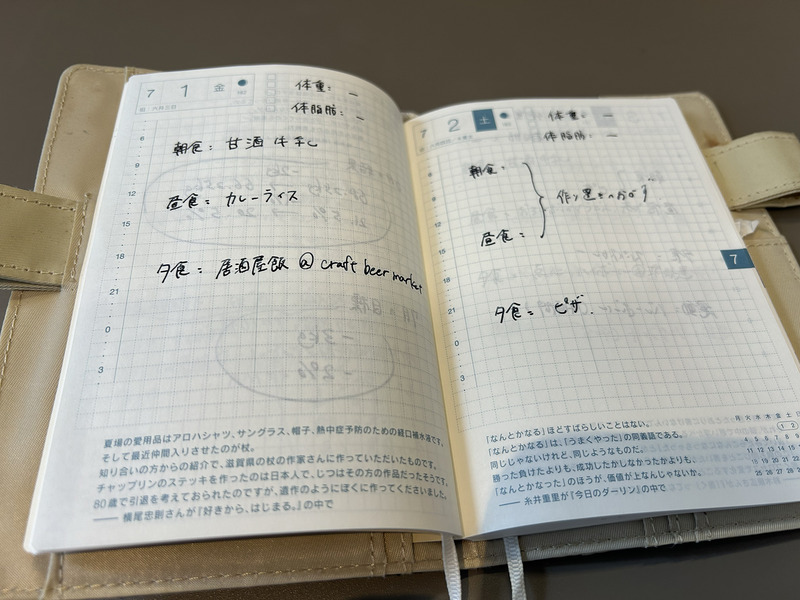 7 1 金
体重: −
体脂肪: −
6
9
12
15
18
21
0
3
朝食: 甘酒 牛乳
昼食: カレーライス
夕食: 居酒屋飯 @ craft beer market
夏場の愛用品はアロハシャツ、サングラス、帽子、熱中症予防のための経口補水液です。
そして最近仲間入りさせたのが杖。
知り合いの方からの紹介で、滋賀県の杖の作家さんに作っていただいたものです。
チャップリンのステッキを作ったのは日本人で、じつはその方の作品だったそうです。
80歳で引退を考えておられたのですが、遺作のようにぼくに作ってくださいました。
── 横尾忠則さんが『好きから、はじまる。』の中で
7 2 土
体重: −
体脂肪: −
12
15
18
21
0
3
朝食:
昼食:
作り置き
夕食: ピザ.
7
「なんとかなる」ほどすばらしいことはない。
「なんとかなる」は、「うまくやった」の同義語である。
同じじゃないけれど、同じようなものだ。
勝った負けたよりも、成功したしなかったかよりも、
「なんとかなった」のほうが、価値が上なんじゃないか。
── 糸井重里が『今日のダーリン』の中で
月 火 水 木 金 土
1 2
4 5 6 7 8 9
11 12 13 14 15 16
18 19 20 21 22
25 26 27 28